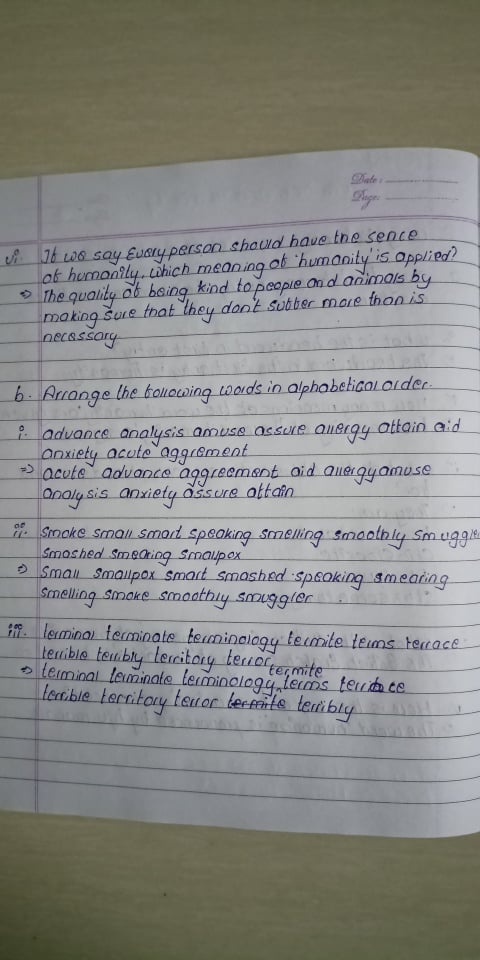 Date:
Page:
vi. If we say Every person should have the sence
of humanity, which meaning of 'humanity' is applied?
⇒ The quality of being kind to people and animals by
making sure that they don't suffer more than is
necessary.
b. Arrange the following words in alphabetical order.
i. advance analysis amuse assure allergy attain aid
anxiety acute aggrement
⇒ acute advance aggreement aid allergy amuse
analysis anxiety assure attain
ii. smoke small smart speaking smelling smoothly smuggler
smashed smearing smalpox
⇒ small smallpox smart smashed speaking smearing
smelling smoke smoothly smuggler
iii. terminal terminate terminology termite terms terrace
terrible terribly territory terror
⇒ terminal terminate terminology termite terms
terrible territory terror termite terribly